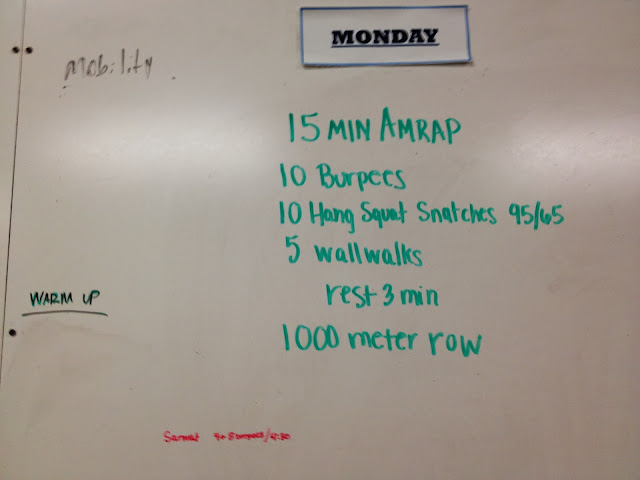 MONDAY
mobility
15 MIN AMRAP
10 Burpees
10 Hang Squat Snatches 95/65
5 wallwalks
rest 3 min
WARM UP
1000 meter row